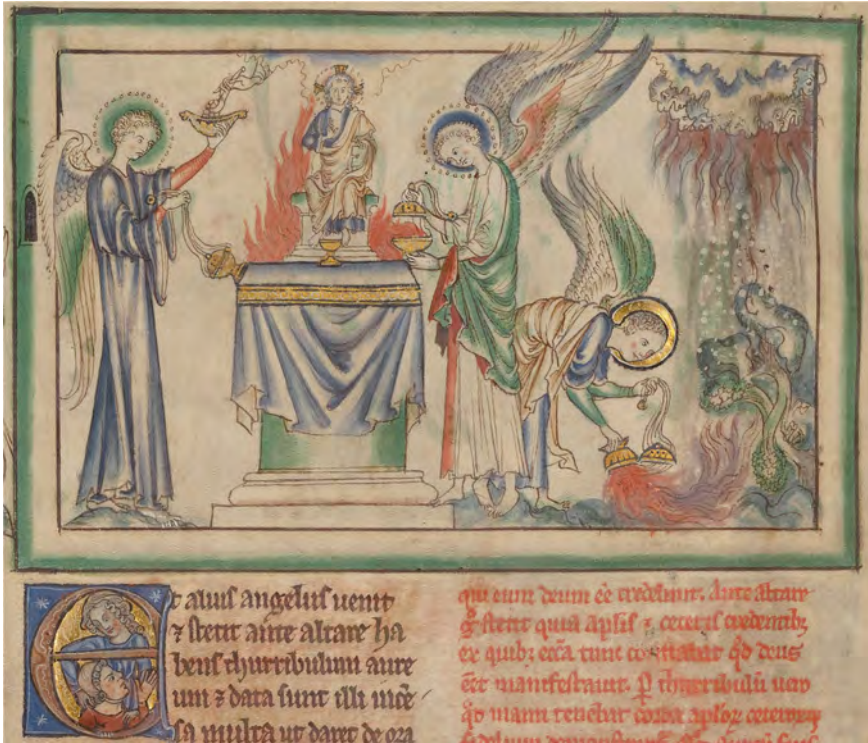 Et alius angelus uenit
⁊ stetit ante altare ha
bens thurribulum aure
um ⁊ data sunt illi ince
sa multa ut daret de ora
qui eum deum ēē crediderunt. Ante altare
stetit quia aplis ⁊ ceteris credentibꝫ
ex quibꝫ ecca tunc qđ deus
eet manifestauit. P thurribulū uero
qđ manu tenebat corda aploꝝ
fidelium